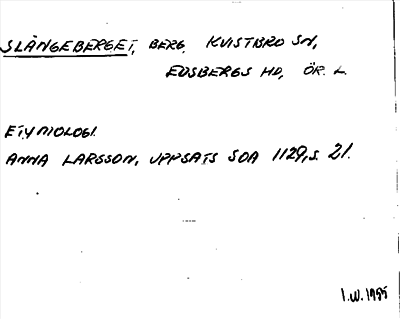 SLÄNGEBERGET, BERG, KVISTBRO SN,
EDSBERGS HD, ÖR. L.
ETYMOLOGI.
ANNA LARSSON, UPPSATS SOA 1129, S. 21.
I.W. 1955